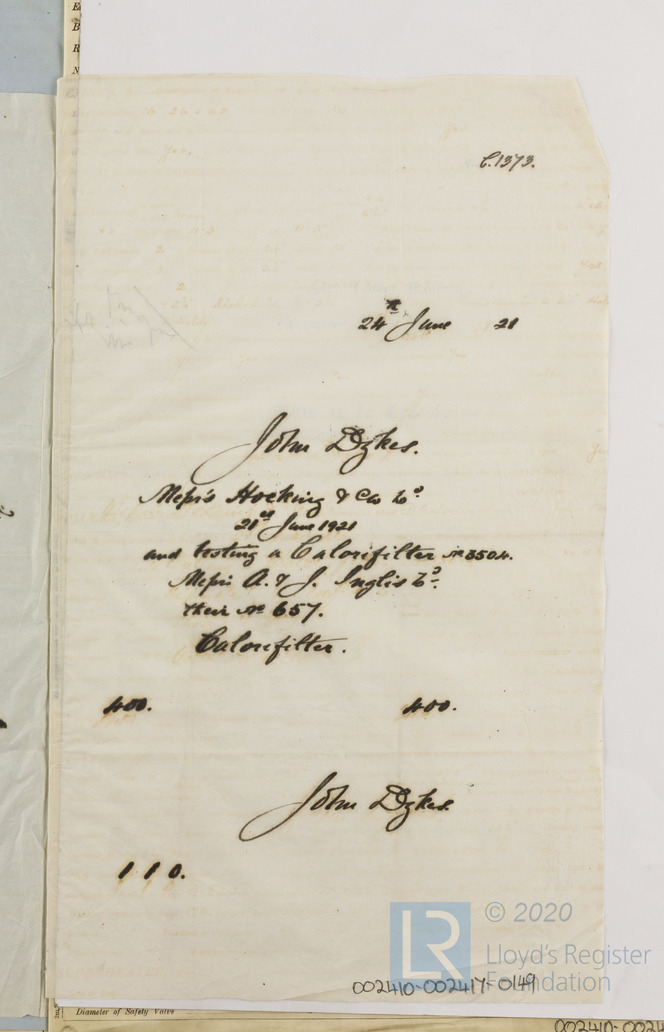 C.1373.
24th June 21
John Dykes.
Messrs Hocking & Co Ld.
21st June 1921
and testing a Calorifilter No 3504.
Messrs A. & J. Inglis Ld.
their No 657.
Calorifilter.
400. 400.
John Dykes.
1 1 0.
LR © 2020
Lloyd's Register
Foundation
002410-002417-0149
Diameter of Safety Valve